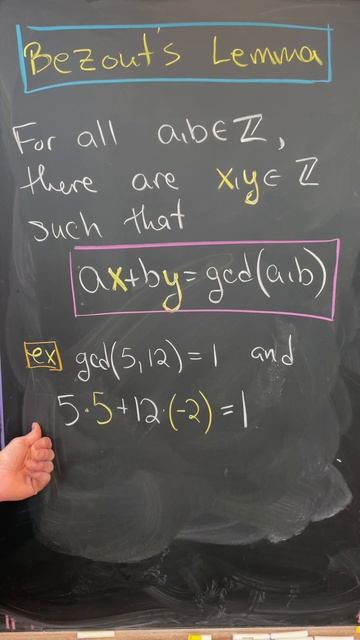 Bezout's Lemma
For all a,b∈ℤ,
there are x,y∈ℤ
such that
ax+by=gcd(a,b)
ex gcd(5,12)=1 and
5·5+12·(-2)=1